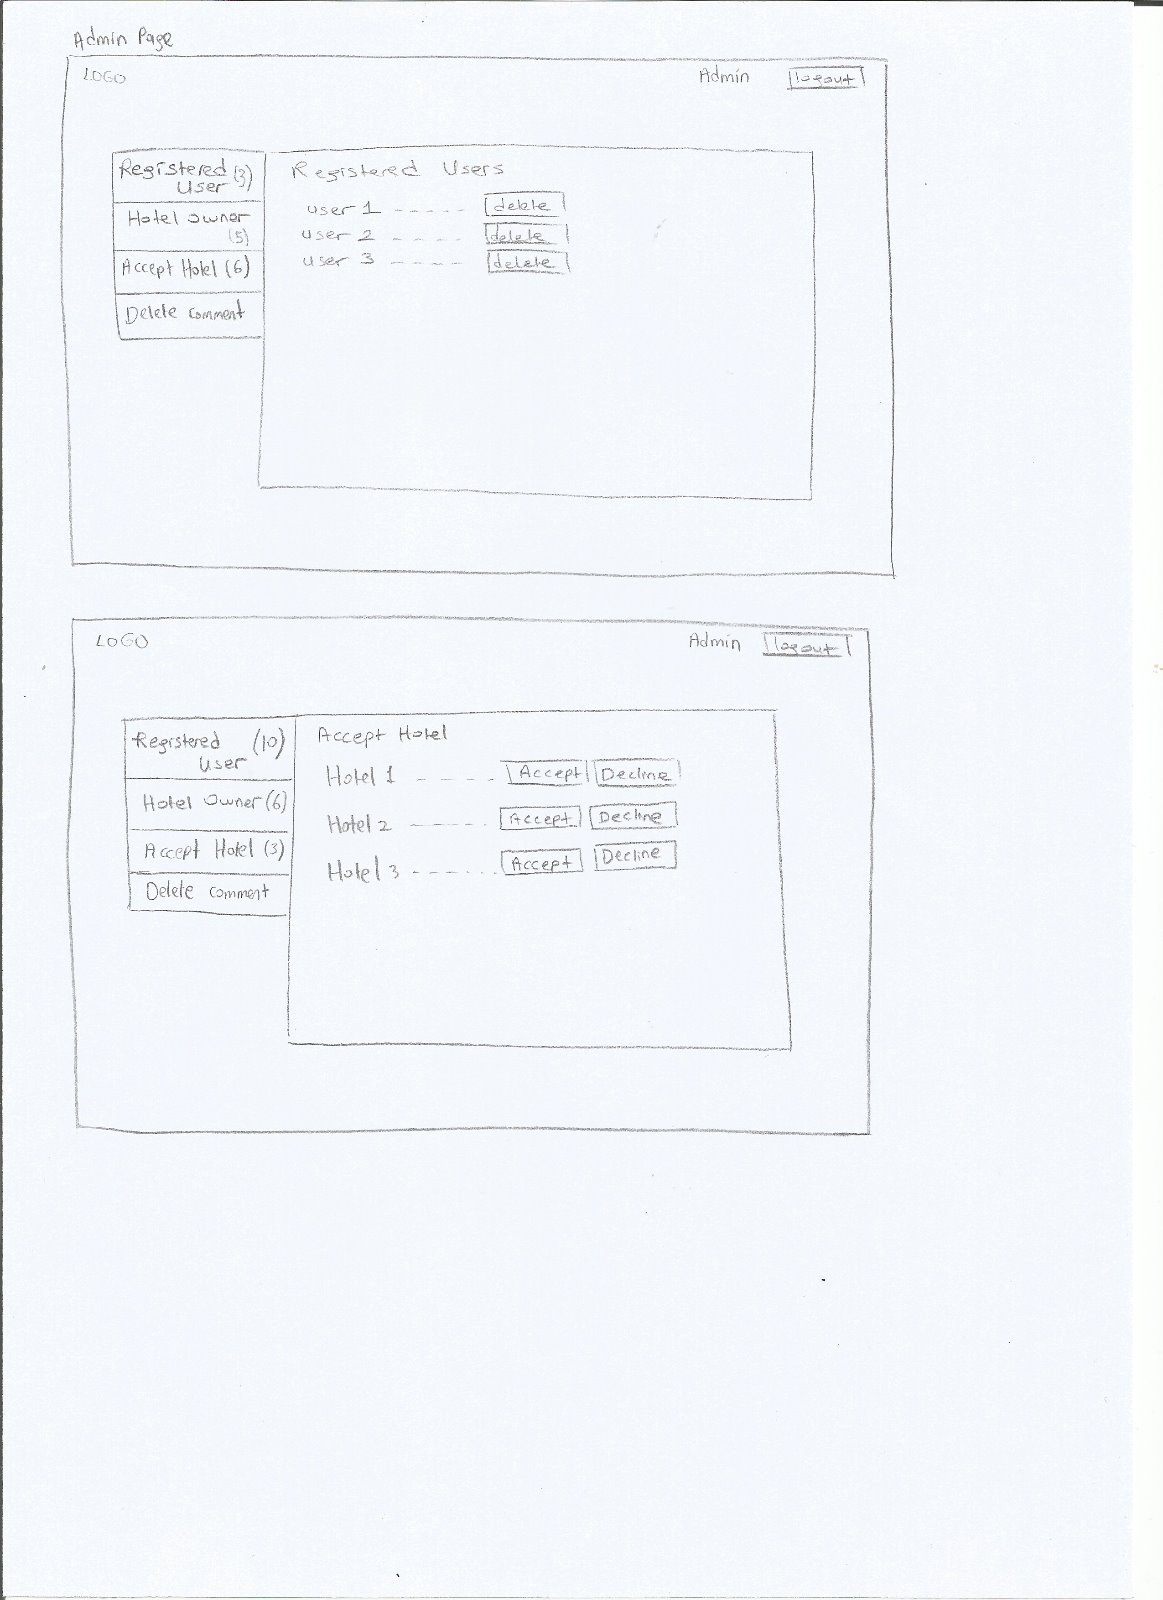 Admin Page
LOGO Admin logout
Registered (3)
User
Hotel owner
(5)
Accept Hotel (6)
Delete comment
Registered Users
user 1 ----- delete
user 2 ---- delete
user 3 ----- delete
LOGO Admin logout
Registered (10)
User
Hotel Owner (6)
Accept Hotel (3)
Delete comment
Accept Hotel
Hotel 1 ----- Accept Decline
Hotel 2 ------ Accept Decline
Hotel 3 ------ Accept Decline